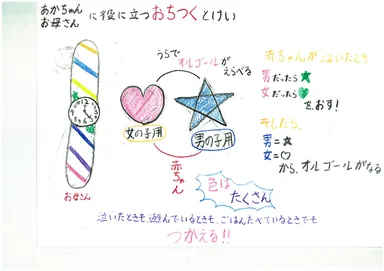 あかちゃん
お母さん
に役に立つおちつくとけい
うらで
オルゴールが
えらべる
女の子用
男の子用
赤ちゃん
お母さん
赤ちゃんが泣いたとき
男だったら★
女だったら♥
をおす!
そしたら、
男=☆
女=♡
から、オルゴールがなる
色は
たくさん
泣いたときも、遊んでいるときも、ごはんたべているときでも
つかえる!!